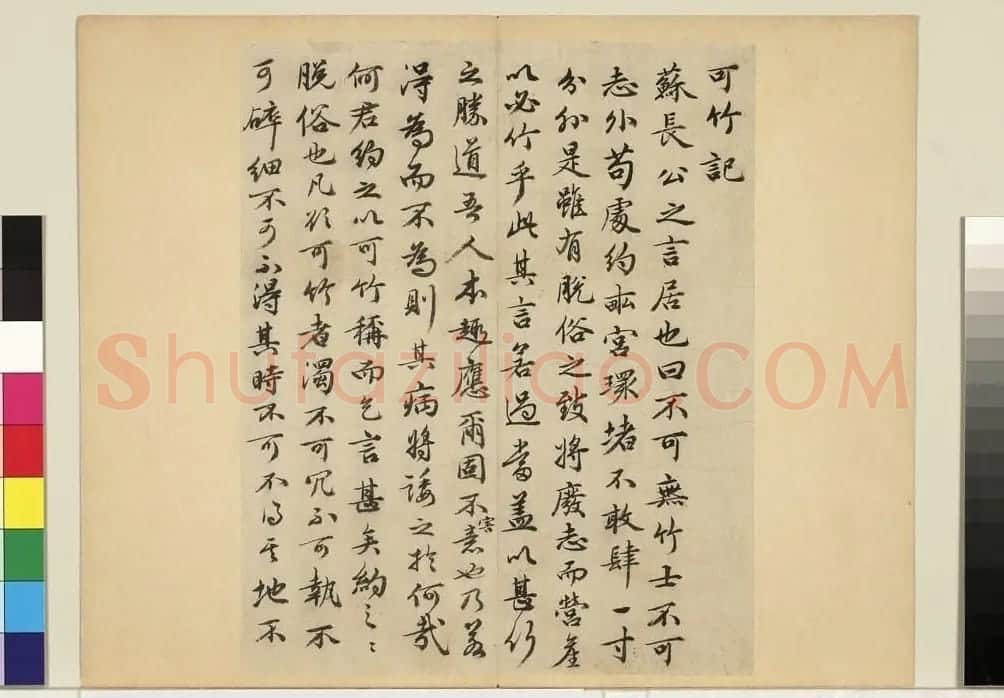 可竹記
蘇長公之言居也曰不可無竹士不可
志外苟處約畝宮環堵不敢肆一寸
分外是雖有脫俗之致將廢志而營產
以必竹乎此其言若過當蓋以甚竹
之勝道吾人本趣應爾固不害意也乃若
得為而不為則其病將諉之於何哉
何君約之以可竹稱而乞言甚矣約之〻
脫俗也凡欲可竹者濁不可冗不可執不
可碎細不可不得其時不可不得其地不
Shufaziliao.COM